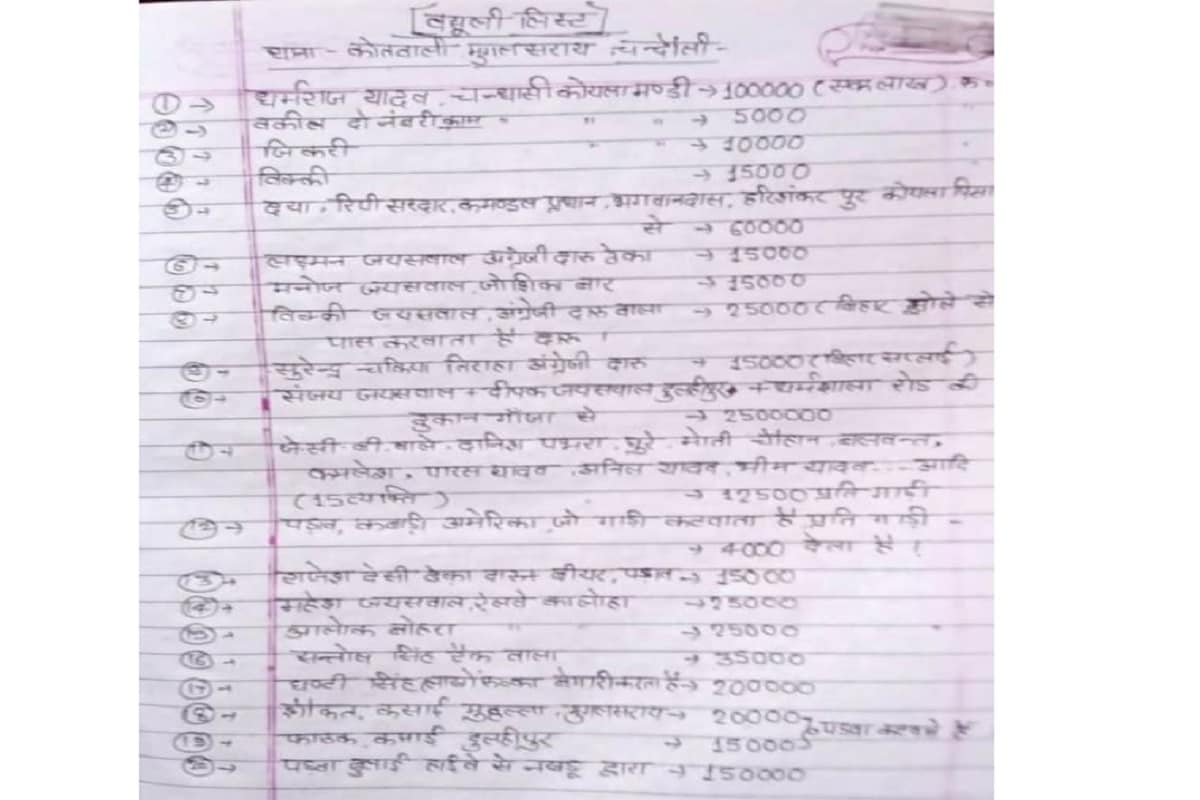 वसूली लिस्ट
थाना - कोतवाली मुगलसराय चन्दौली -
① → धर्मराज यादव, चन्धासी कोयला मण्डी → 100000 (एक लाख) रू.
② → वकील दो नंबरी काम " " " → 5000
③ → " " → 10000
④ → विक्की → 15000
⑤ → दया, सरदार, कमण्डल प्रधान, भगवानदास, हरिशंकर पुर कोयला
से → 60000
⑥ → लक्ष्मन जयसवाल अंग्रेजी दारू ठेका → 15000
⑦ → मनोज जयसवाल, बार → 15000
⑧ → विक्की जयसवाल, अंग्रेजी दारू वाला → 25000 (बिहार से
पास करवाता है दारू ।
⑨ → सुरेन्द्र चकिया तिराहा अंग्रेजी दारू → 15000 (बिहार सप्लाई)
⑩ → संजय जयसवाल + दीपक जयसवाल दुलहीपुर + धर्मशाला रोड की
दुकान गाँजा से → 2500000
⑪ → जे.सी.बी. वाले, दानिश, मोती चौहान, बलवन्त,
कमलेश, पारस यादव, अनिल यादव, भीम यादव.... आदि
(15 व्यक्ति) → 12500 प्रति गाड़ी
⑫ → पड़ाव, कबाड़ी अमेरिका जो गाड़ी कटवाता है प्रति गाड़ी -
→ 4000 देता है ।
⑬ → राजेश देसी ठेका बीयर, पड़ाव → 15000
⑭ → महेश जयसवाल, रेलवे → 25000
⑮ → आलोक " " → 25000
⑯ → सन्तोष सिंह वाला → 35000
⑰ → सिंह करता है → 200000
⑱ → अंकित, कसाई मुहल्ला, मुगलसराय → 20000 } पड़वा कटवाते हैं
⑲ → फाटक, कसाई दुलहीपुर → 15000
⑳ → पड़वा हाईवे से द्वारा → 150000